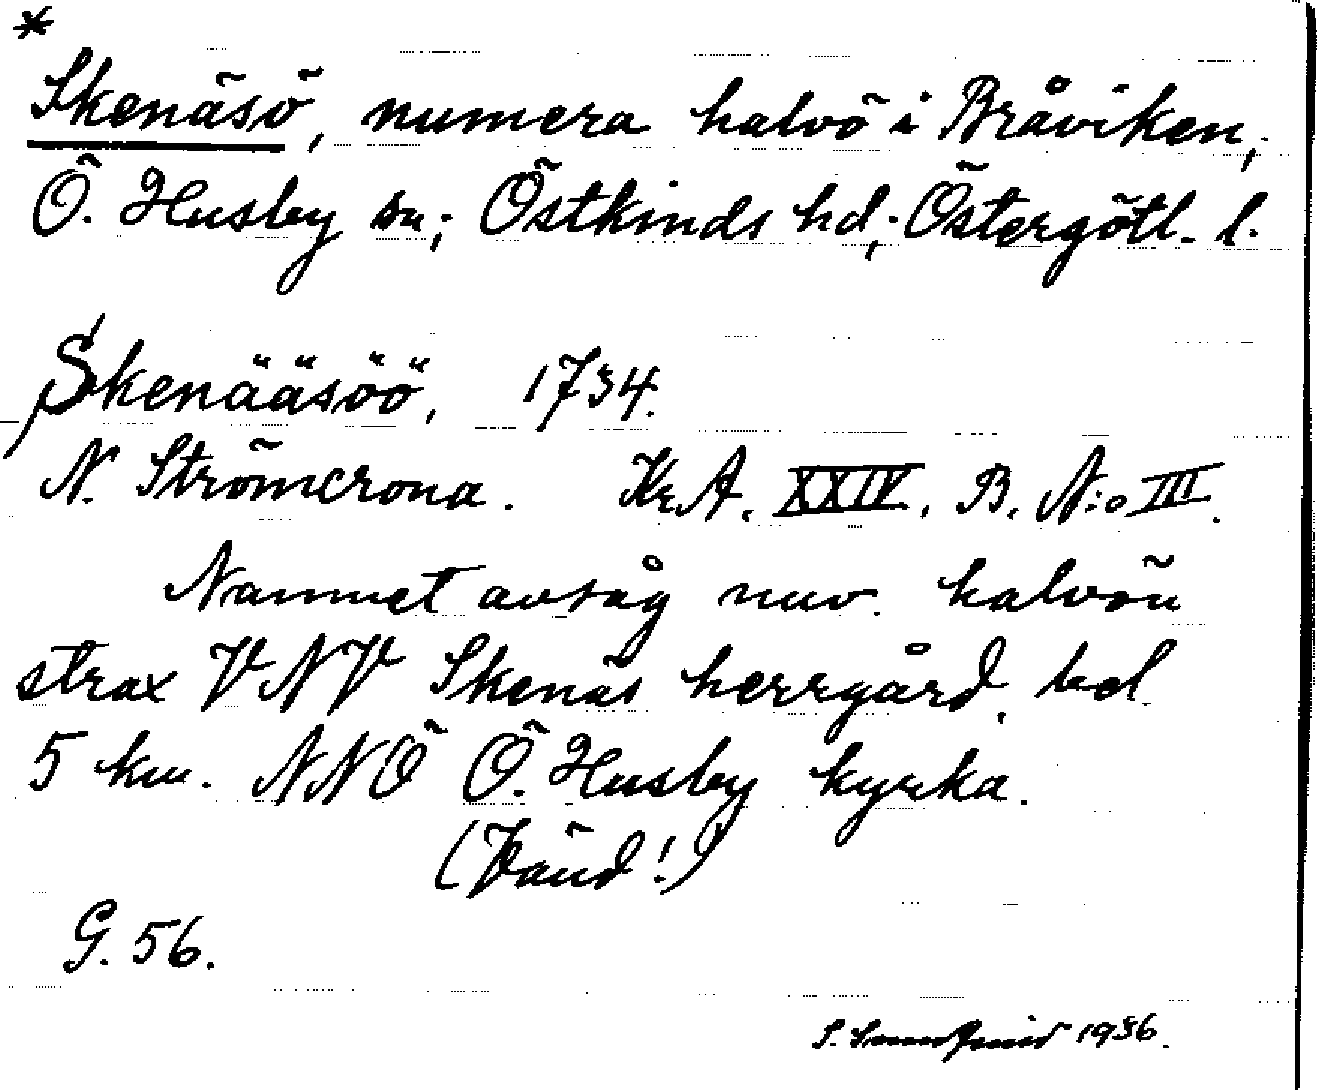 *
Skenäsö, numera halvö i Bråviken,
Ö. Husby sn; Östkinds hd; Östergötl. l.
Skenääsöö, 1734.
N. Strömcrona. Kr. A. XXIV. B. N:o III.
Namnet avsåg nuv. halvön
strax VNV Skenäs herrgård, bel
5 km. NNÖ Ö. Husby kyrka.
(Vänd!)
G. 56.
1936.